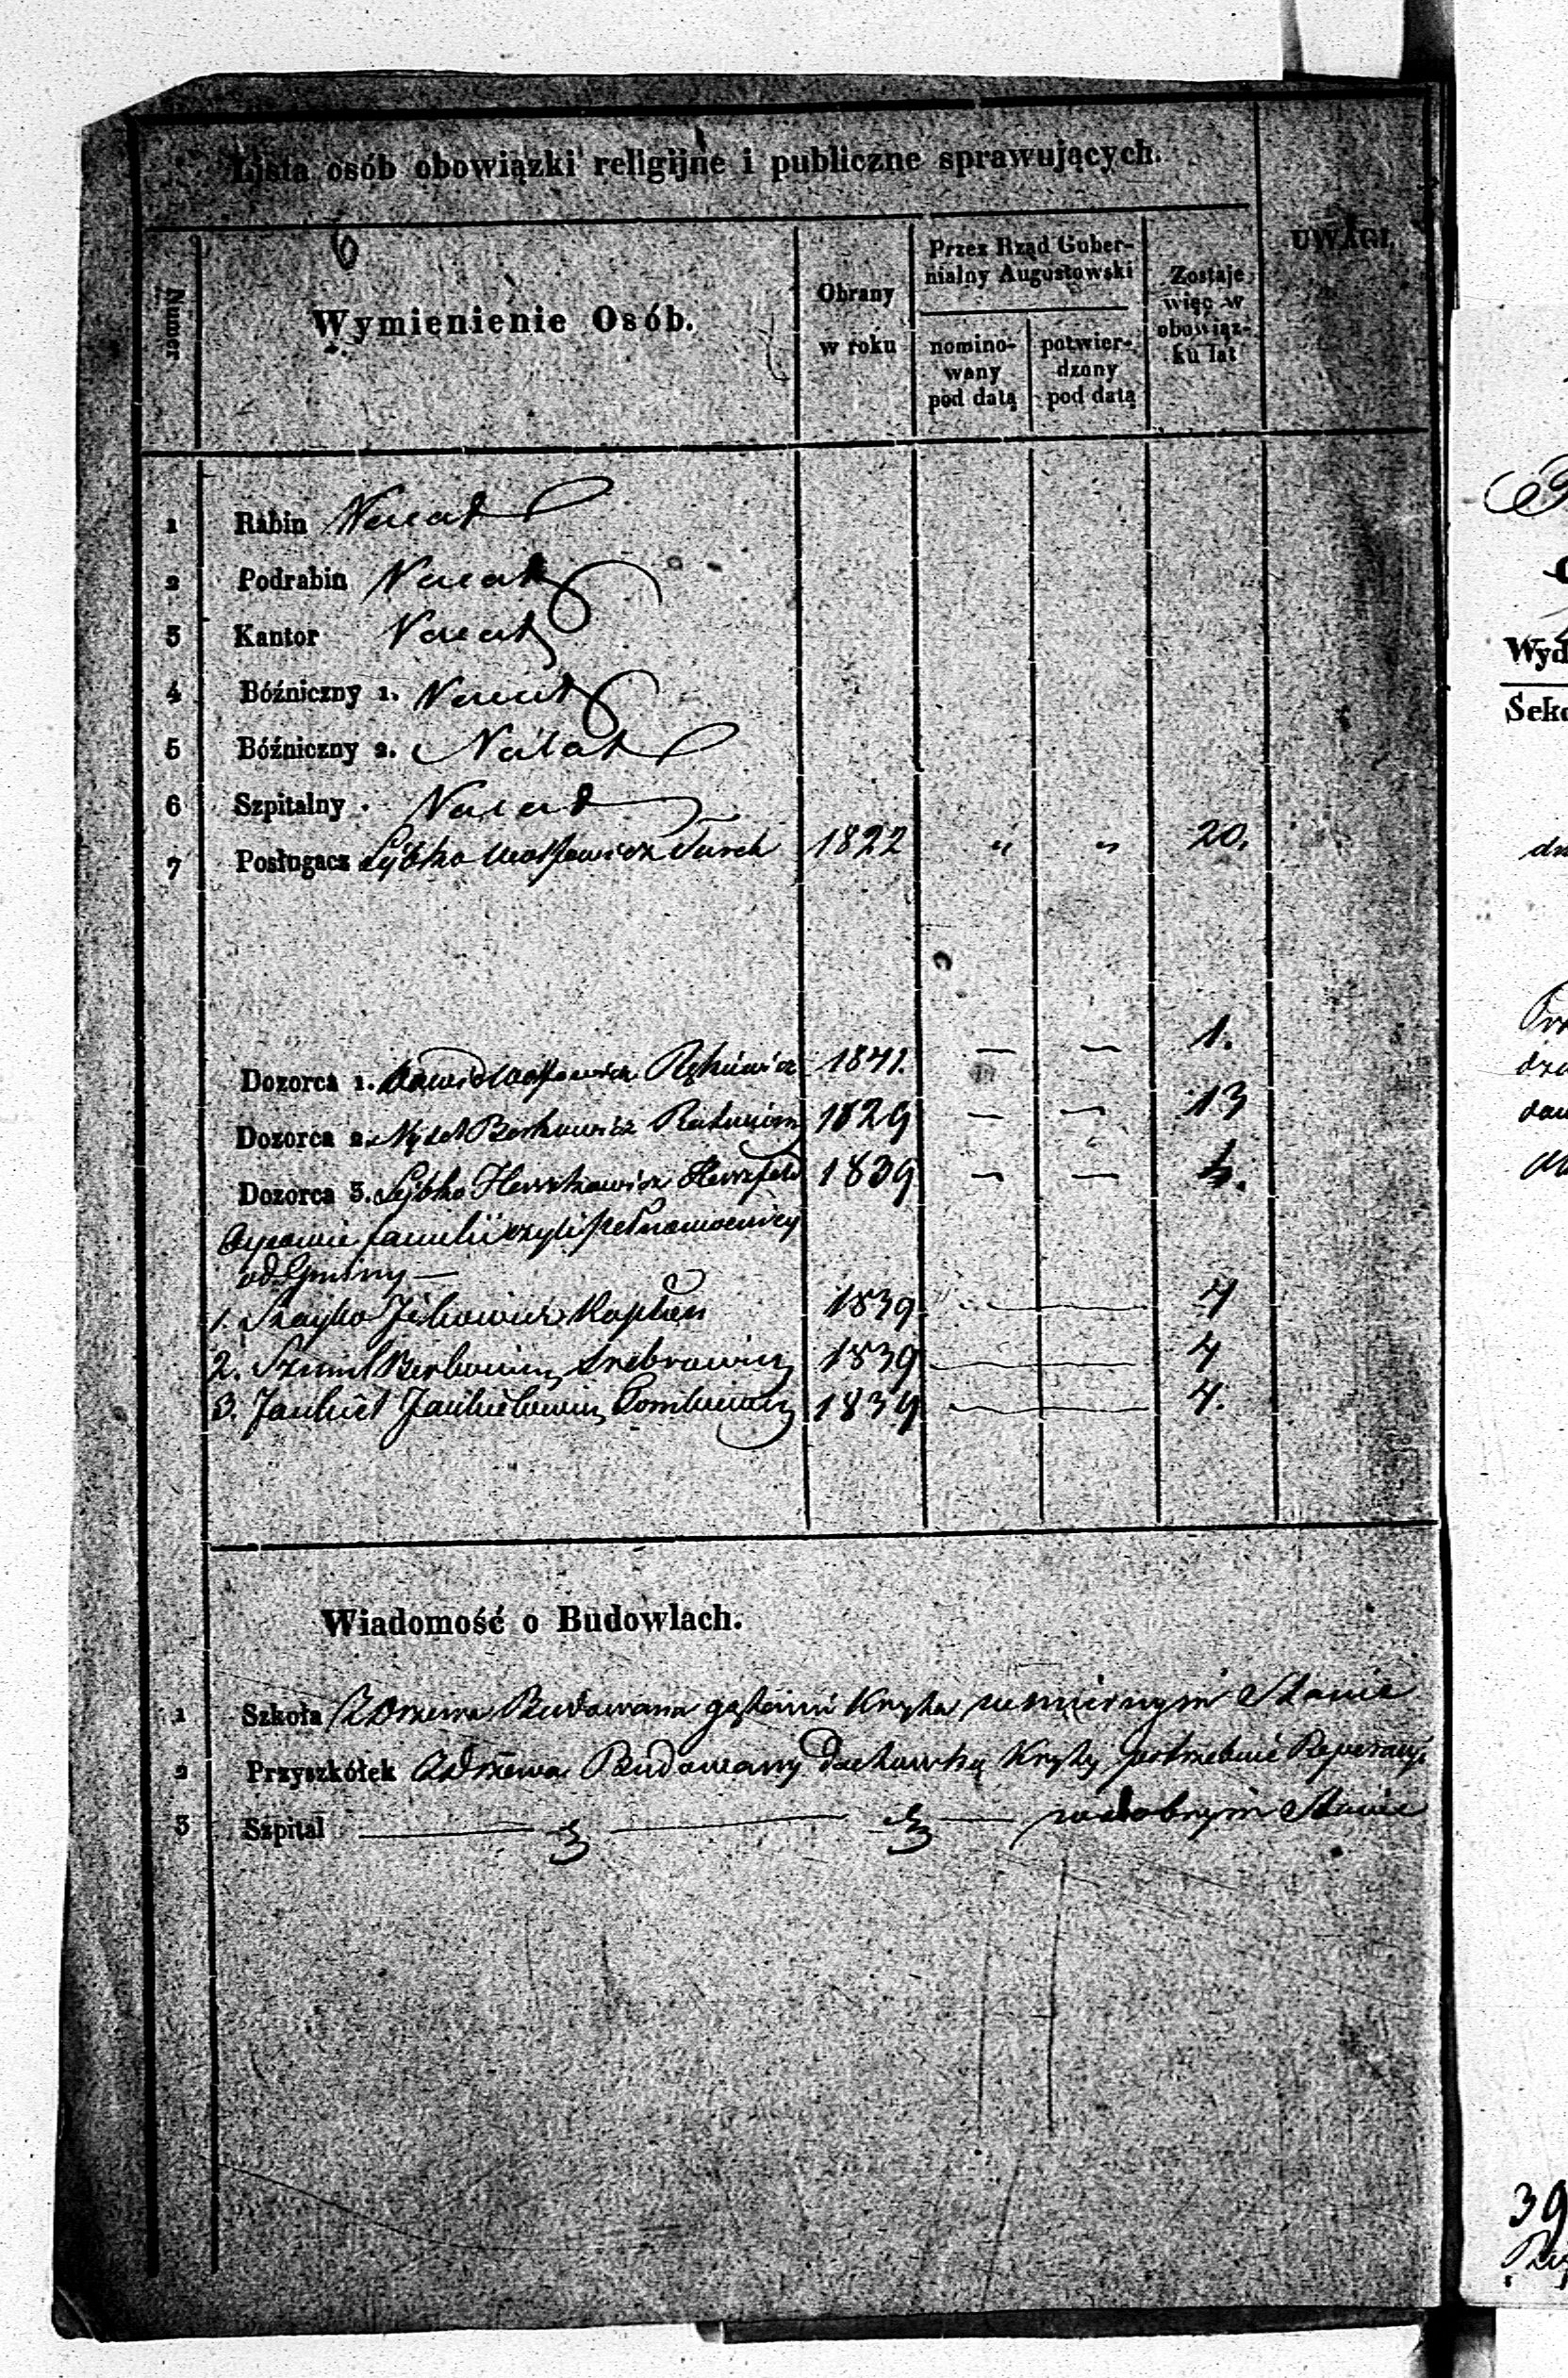 Lista osób obowiązki religijne i publiczne sprawujących.
6
Numer
Wymienienie Osób.
Obrany
w roku
Przez Rząd Guber-
nialny Augustowski
nomino-
wany
pod datą
potwier-
dzony
pod datą
Zostaje
więc w
obowiąz-
ku lat
UWAGI.
1 Rabin Vacat
2 Podrabin Vacat
3 Kantor Vacat
4 Bóźniczny 1. Vacat
5 Bóźniczny 2. Vacat
6 Szpitalny Vacat
7 Posługacz Leybko 1822 " " 20.
Dozorca 1. Dawid 1841. — — 1.
Dozorca 2. Berkowicz 1829 — — 13
Dozorca 3. Leybko Herszkowicz 1839 — — 4.
Oycowie familii czyli pełnomocnicy
od Gminy —
1. Kaplan 1839 4
2. Szmul Berkowicz Srebrowicz 1839 4
3. Jankiel Jankielowicz 1839 4.
Wiadomość o Budowlach.
1 Szkoła Z Drzewa Budowana gątami Kryta w miernym Stanie
2 Przyszkółek Z Drzewa Budowany Dachówką Kryty potrzebuie Reperacyi
3 Szpital — — w dobrym Stanie
Wyd
Sek
39